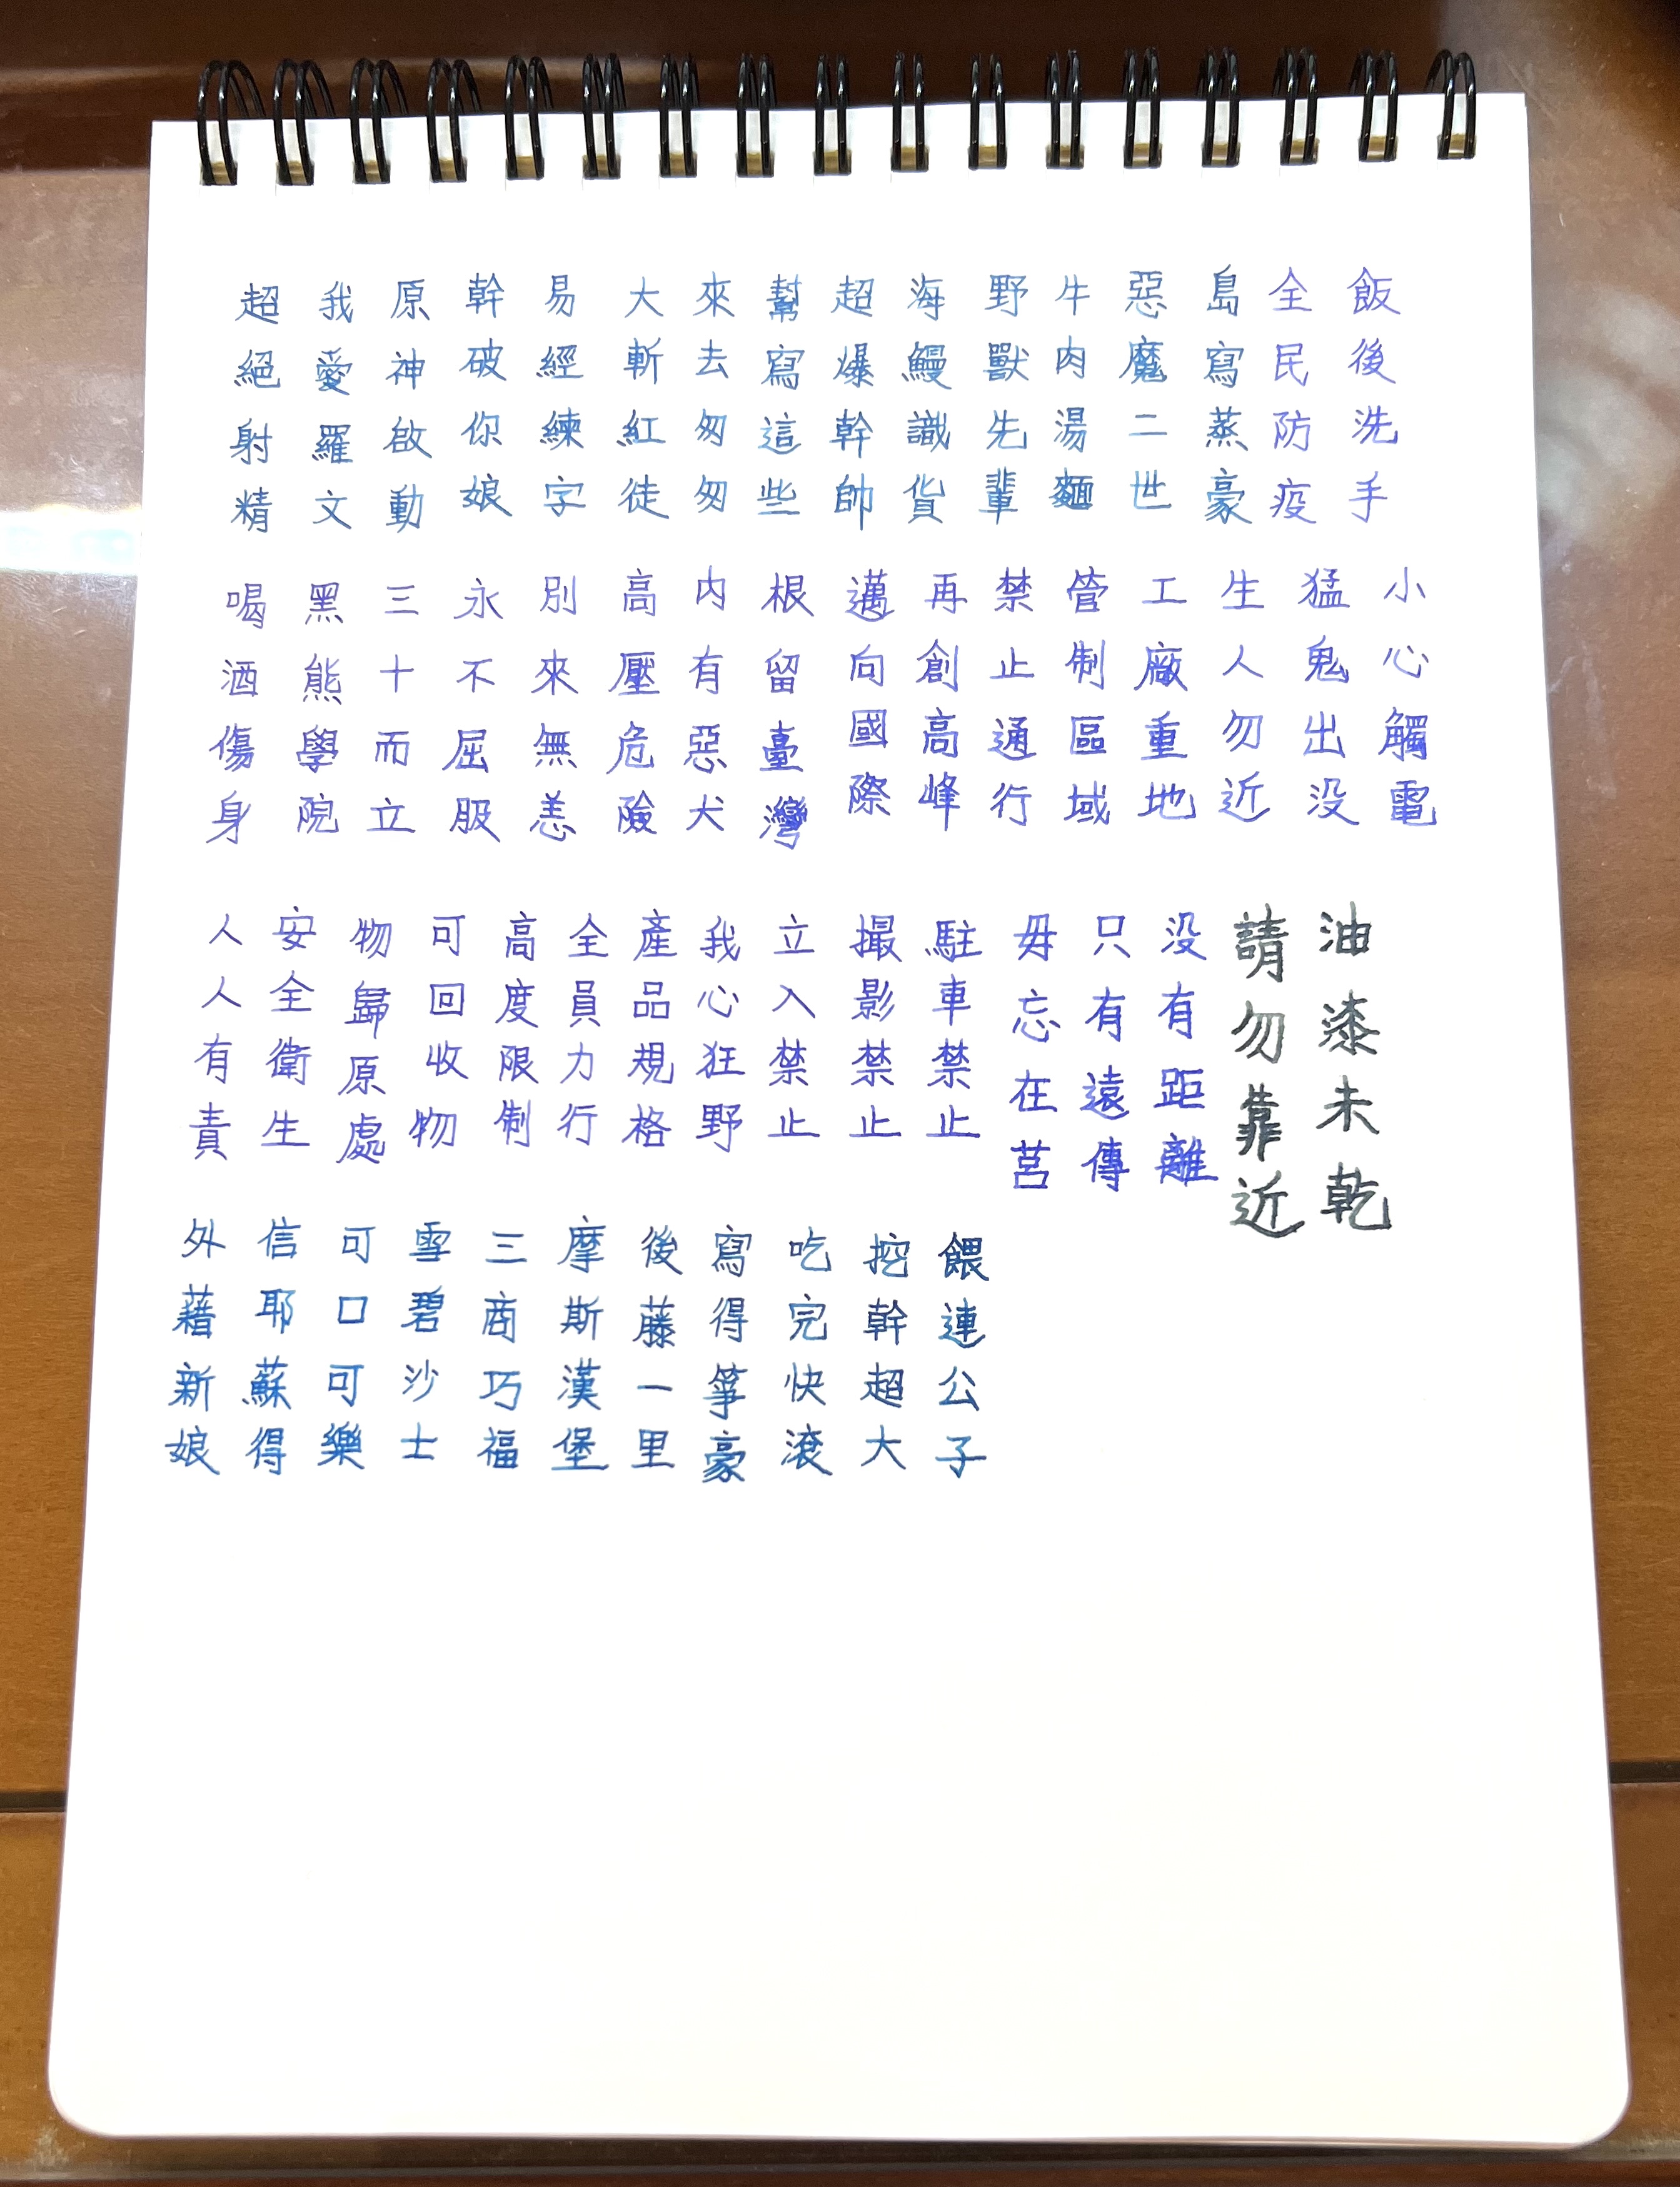 飯後洗手
全民防疫
島寫蒸豪
惡魔二世
牛肉湯麵
野獸先輩
海鰻識貨
超爆幹帥
幫寫這些
來去匆匆
大斬紅徒
易經練字
幹破你娘
原神啟動
我愛羅文
超絕射精
小心觸電
猛鬼出没
生人勿近
工廠重地
管制區域
禁止通行
再創高峰
邁向國際
根留臺灣
內有惡犬
高壓危險
別來無恙
永不屈服
三十而立
黑熊學院
喝酒傷身
油漆未乾
請勿靠近
没有距離
只有遠傳
毋忘在莒
駐車禁止
撮影禁止
立入禁止
我心狂野
產品規格
全員力行
高度限制
可回收物
物歸原處
安全衛生
人人有責
餵連公子
挖幹超大
吃完快滾
寫得箏豪
後藤一里
摩斯漢堡
三商巧福
雪碧沙士
可口可樂
信耶蘇得
外藉新娘